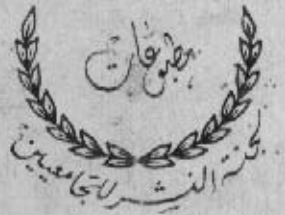 مطبوعات
لجنة النشر للجامعيين